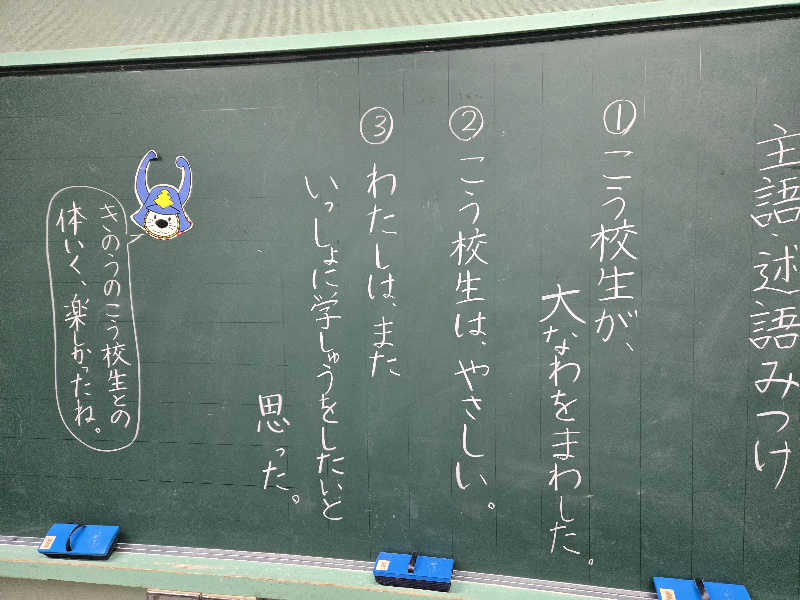 主語・述語みつけ
①こう校生が、
大なわをまわした。
②こう校生は、やさしい。
③わたしは、また
いっしょに学しゅうをしたいと
思った。
きのうのこう校生との
体いく、楽しかったね。